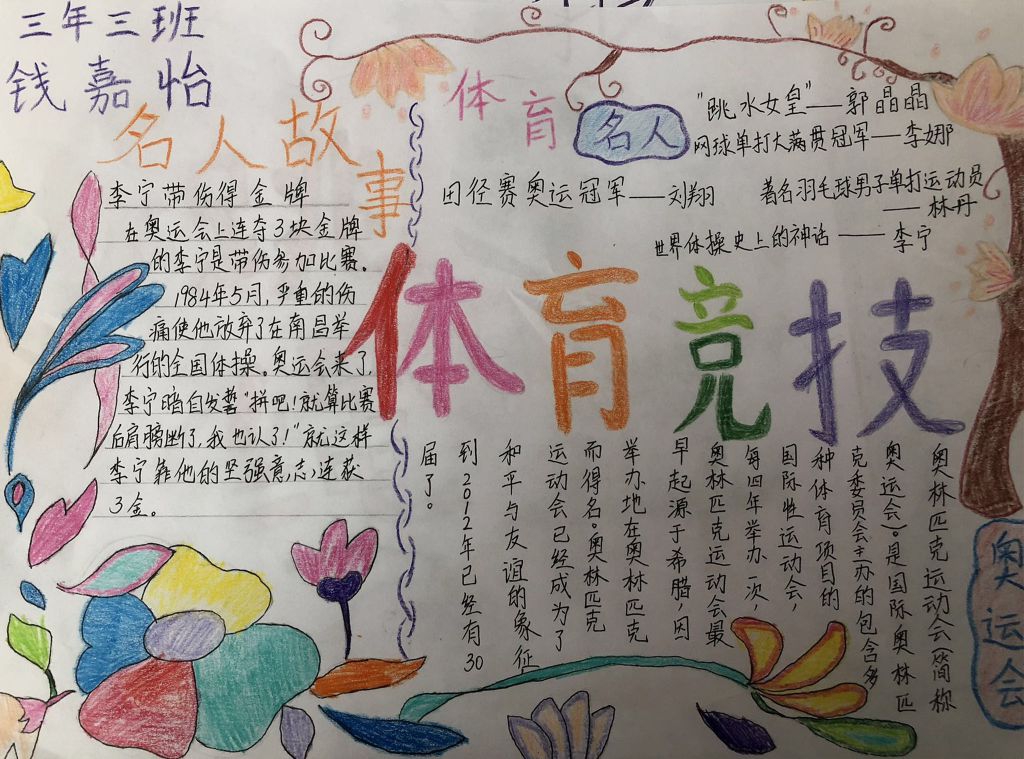 三年三班
钱嘉怡
名人故事
李宁带伤得金牌
在奥运会上连夺3块金牌
的李宁是带伤参加比赛。
1984年5月,严重的伤
痛使他放弃了在南昌举
行的全国体操。奥运会来了,
李宁暗自发誓"拼吧!就算比赛
后肩膀断了,我也认了!"就这样
李宁靠他的坚强意志,连获
3金。
体育名人
"跳水女皇"——郭晶晶
网球单打大满贯冠军——李娜
田径赛奥运冠军——刘翔
著名羽毛球男子单打运动员
——林丹
世界体操史上的神话——李宁
体育竞技
奥运会
奥林匹克运动会(简称
奥运会)。是国际奥林匹
克委员会主办的包含多
种体育项目的
国际性运动会,
每四年举办一次,
奥林匹克运动会最
早起源于希腊,因
举办地在奥林匹克
而得名。奥林匹克
运动会已经成为了
和平与友谊的象征
到2012年已经有30
届了。